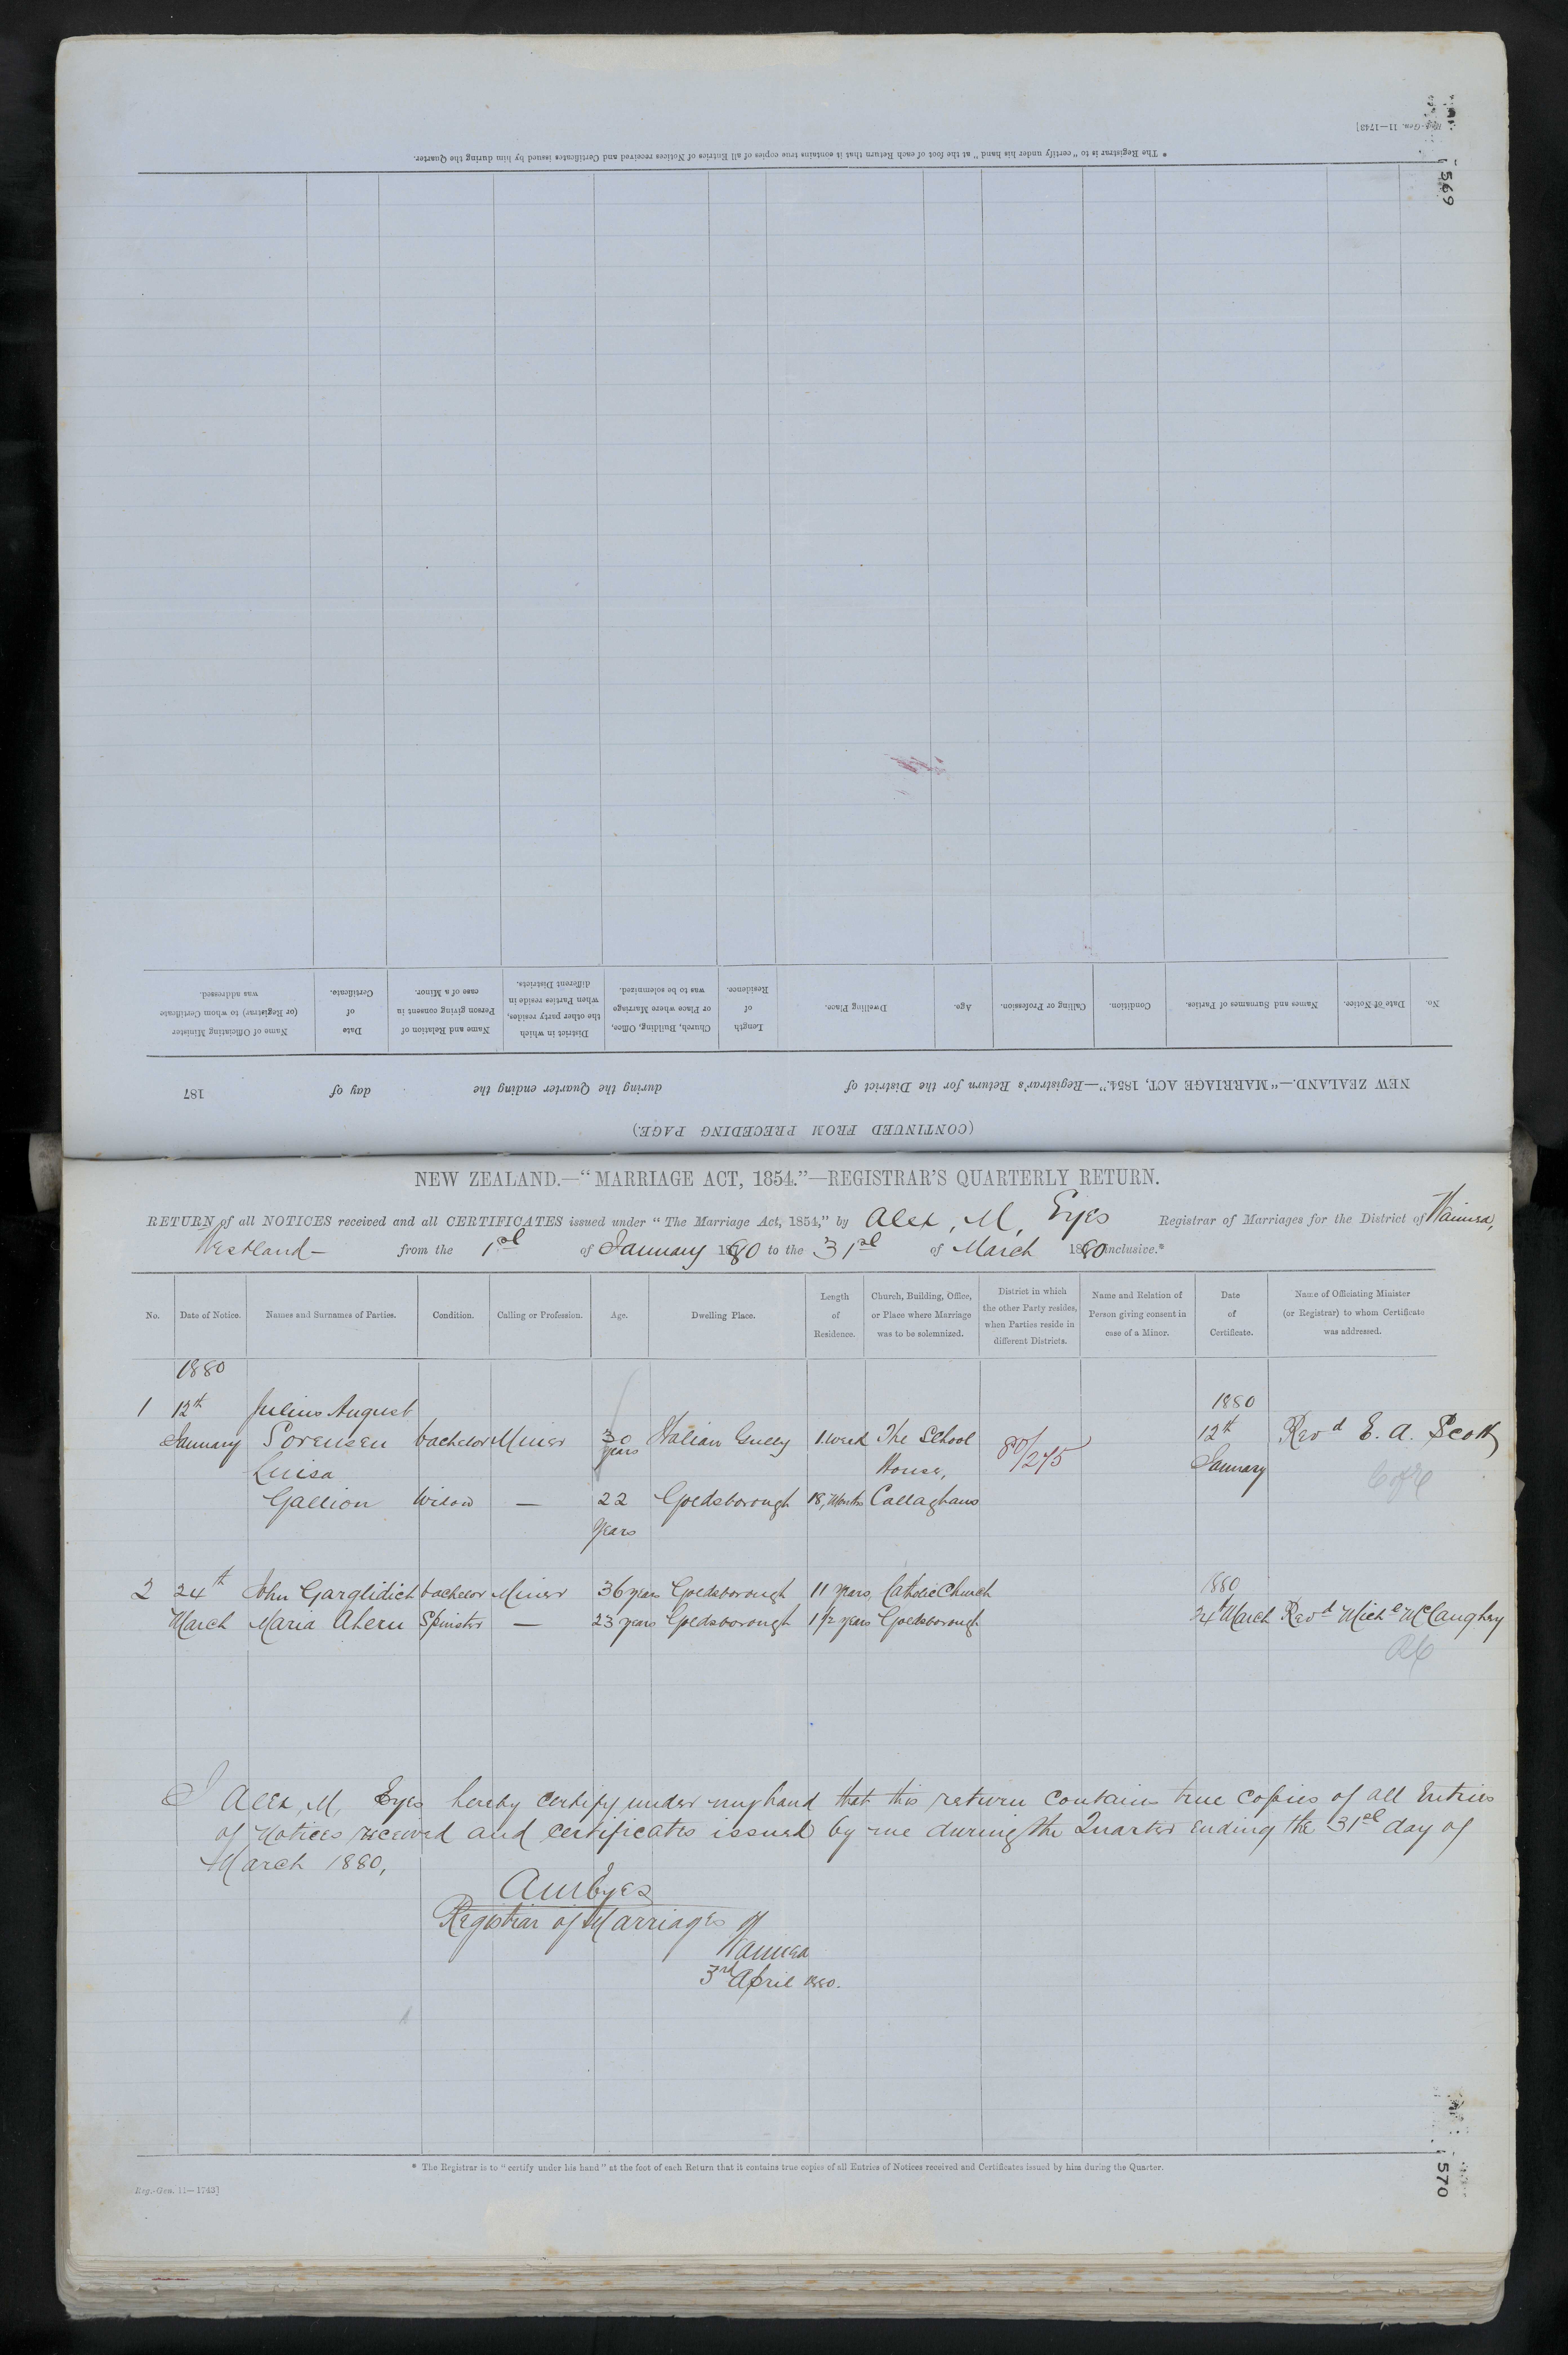 Reg.-Gen. 11—1743]
* The Registrar is to "certify under his hand" at the foot of each Return that it contains true copies of all Entries of Notices received and Certificates issued by him during the Quarter.
569
(CONTINUED FROM PRECEDING PAGE.)
NEW ZEALAND.—"MARRIAGE ACT, 1854."—Registrar's Return for the District of during the Quarter ending the day of 187
No. Date of Notice. Names and Surnames of Parties. Condition. Calling or Profession. Age. Dwelling Place. Length of Residence. Church, Building, Office, or Place where Marriage was to be solemnized. District in which the other party resides, when Parties reside in different Districts. Name and Relation of Person giving consent in case of a Minor. Date of Certificate. Name of Officiating Minister (or Registrar) to whom Certificate was addressed.
NEW ZEALAND.—"MARRIAGE ACT, 1854."—REGISTRAR'S QUARTERLY RETURN.
RETURN of all NOTICES received and all CERTIFICATES issued under "The Marriage Act, 1854," by Alex, M, Eyes Registrar of Marriages for the District of Waimea,
Westland— from the 1st of January 1880 to the 31st of March 1880 inclusive.*
No. Date of Notice. Names and Surnames of Parties. Condition. Calling or Profession. Age. Dwelling Place. Length of Residence. Church, Building, Office, or Place where Marriage was to be solemnized. District in which the other Party resides, when Parties reside in different Districts. Name and Relation of Person giving consent in case of a Minor. Date of Certificate. Name of Officiating Minister (or Registrar) to whom Certificate was addressed.
1880
1 12th Julius August 1880
January Sorensen bachelor Miner 30 years Italian Gully 1 week The School 80/275 12th Revd E. A. Scott
Luisa House, January C of E
Gallion Widow — 22 Goldsborough 18, Months Callaghans
years
2 24th John Garglidich bachelor Miner 36 years Goldsborough 11 years, Catholic Church 1880
March Maria Ahern Spinster — 23 years Goldsborough 1 1/2 years Goldsborough 24th March Revd Michl McCaughey
RC
I Alex, M, Eyes hereby certify under my hand that this return contains true copies of all Entries
of Notices received and certificates issued by me during the Quarter ending the 31st day of
March 1880,
AM Eyes
Registrar of Marriages
Waimea
3rd April 1880.
* The Registrar is to "certify under his hand" at the foot of each Return that it contains true copies of all Entries of Notices received and Certificates issued by him during the Quarter.
Reg.-Gen. 11—1743]
570